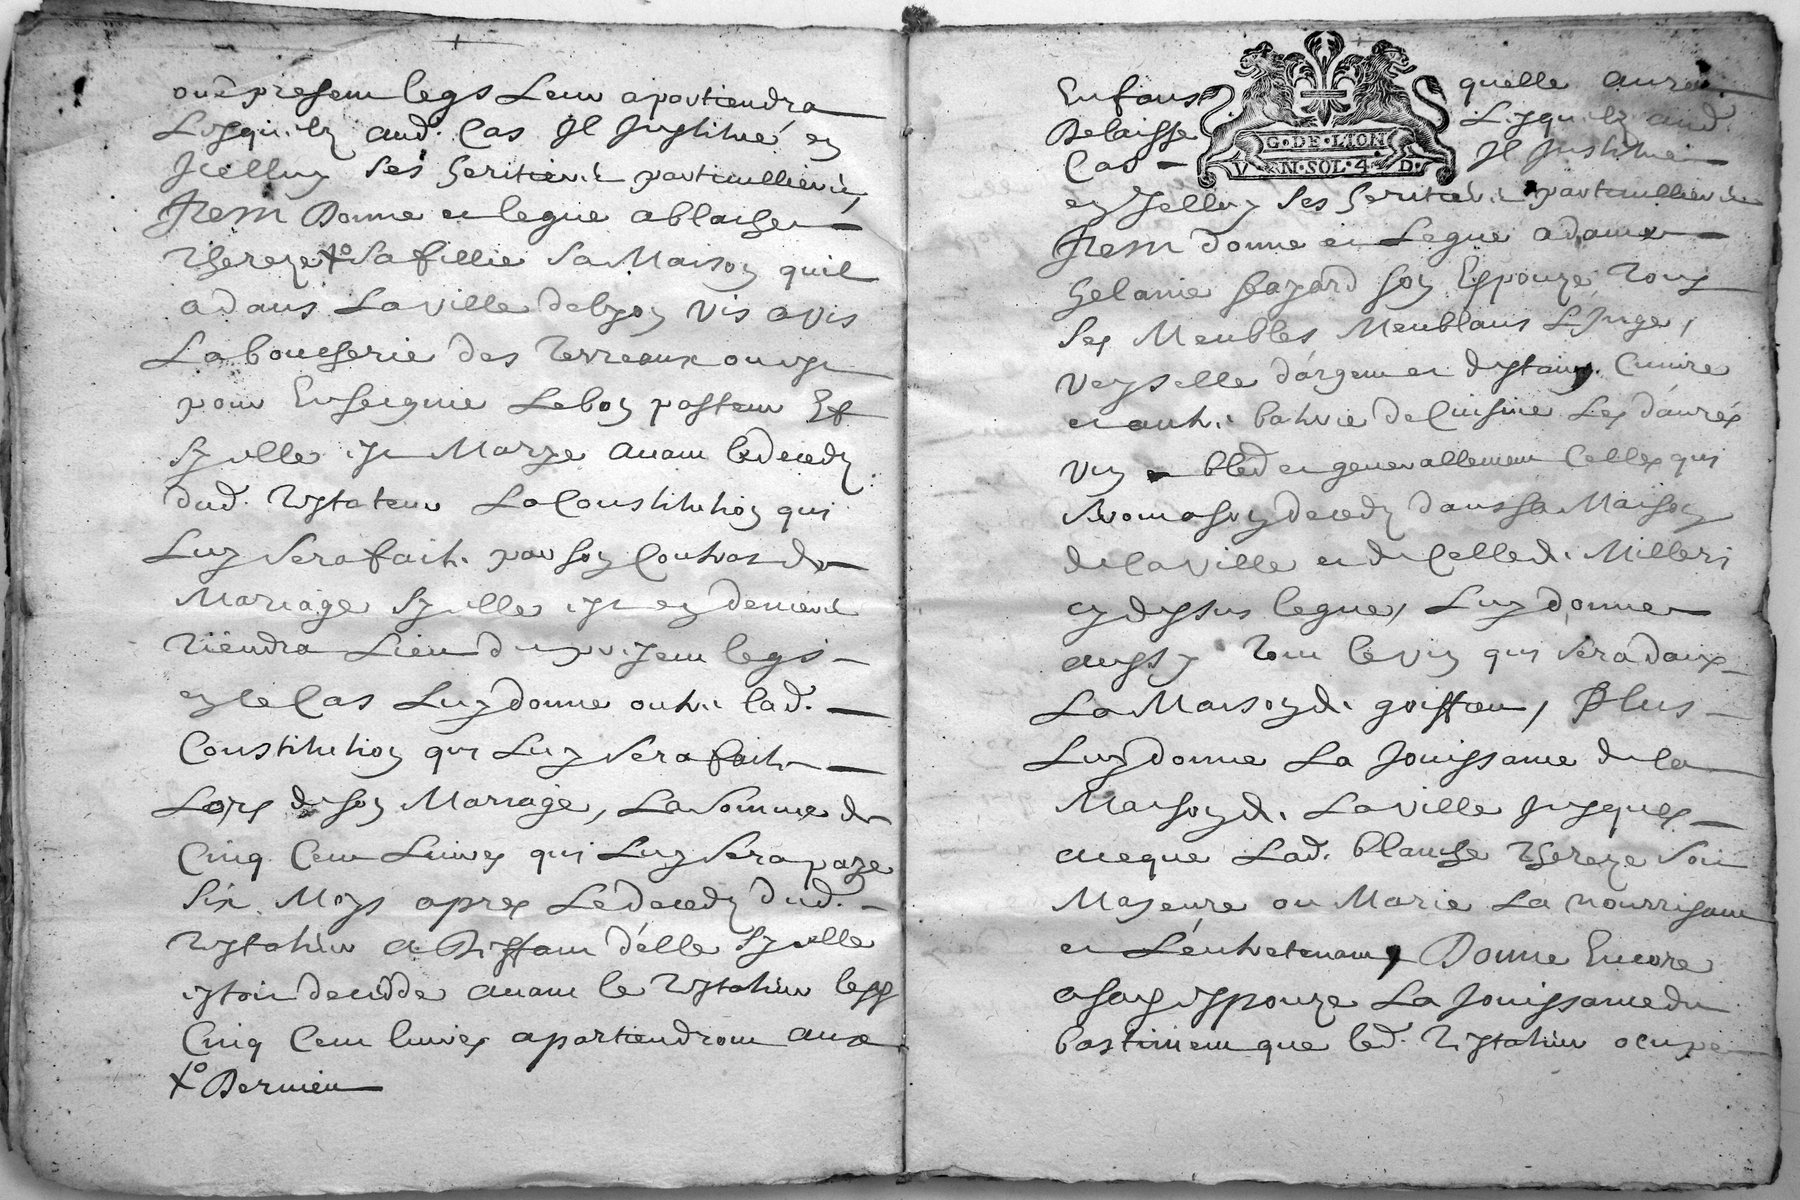 present legs Leur apartiendra
Lesquelz aud. Cas Il Institue en
Icelluy ses heritiers particulliers,
Item Donne et legue a blanche
Thereze x° sa fillie sa Maison quil
a dans La ville de lyon vis a vis
La boucherie des Terreaux ou est
pour Enseigne Le bon pasteur Et
Sy elle est Marye avant le deceds
dud. Testateur La Constitution qui
Luy sera faite par son Contrat de
Mariage Sy elle est en deniers
Tiendra Lieu du present legs
et le Cas Luy donne outre lad.
Constitution qui Luy sera faite
Lors de son Mariage, La somme de
Cinq Cent Livres qui Luy sera paye
Six Moys apres Le deceds dud.
Testateur et Deffant d'elle Sy elle
estoit decedde avant le Testateur les
Cinq Cent livres apartiendront aux
x° Dernier
Enfans quelle aura
Delaisse Lesquelz aud.
Cas Il Institue
G·DE·LION
V N·SOL·4·D·
en Icelluy ses heritiers particulliers
Item donne et Legue a dame
helanie bayard son Espouze Tous
Ses Meubles Meublans Linge,
Veysselle d'argent et destaing, Cuivre
et autre batrie de Cuisine Les danrés
Vin et bled et generallement Celles qui
se trouveront a son deceds dans sa Maison
de la ville et de Celle de Milleri
cy dessus legue, Luy donne
aussy tout le vin qui sera dans
La Maison de goiffieu, Plus
Luy donne La Jouissance de la
Maison de La ville Jusques
a ce que Lad. blanche Thereze soit
Majeure ou Marie La nourrissant
et L'entretenant, Donne Encore
a sa espouze La Jouissance du
bastiment que led. Testateur ocupe